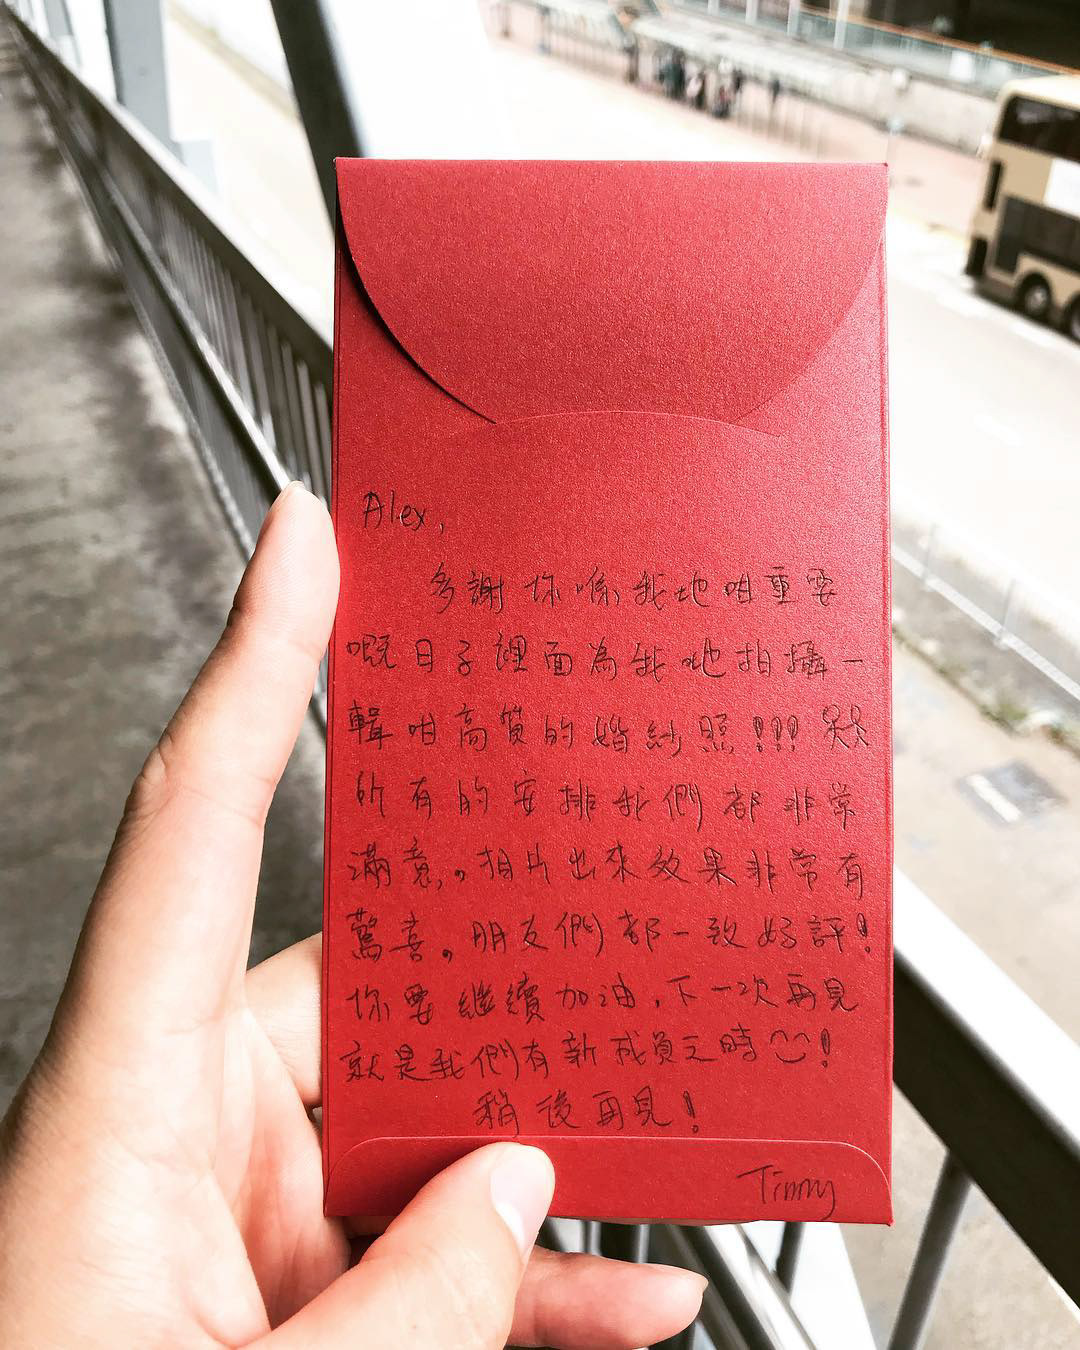 Alex,
多謝你喺我地咁重要
嘅日子裡面為我哋拍攝一
輯咁高質的婚紗照!!!
所有的安排我們都非常
滿意。相片出來效果非常有
驚喜。朋友們都一致好評!
你要繼續加油,下一次再見
就是我們有新成員之時!
稍後再見!